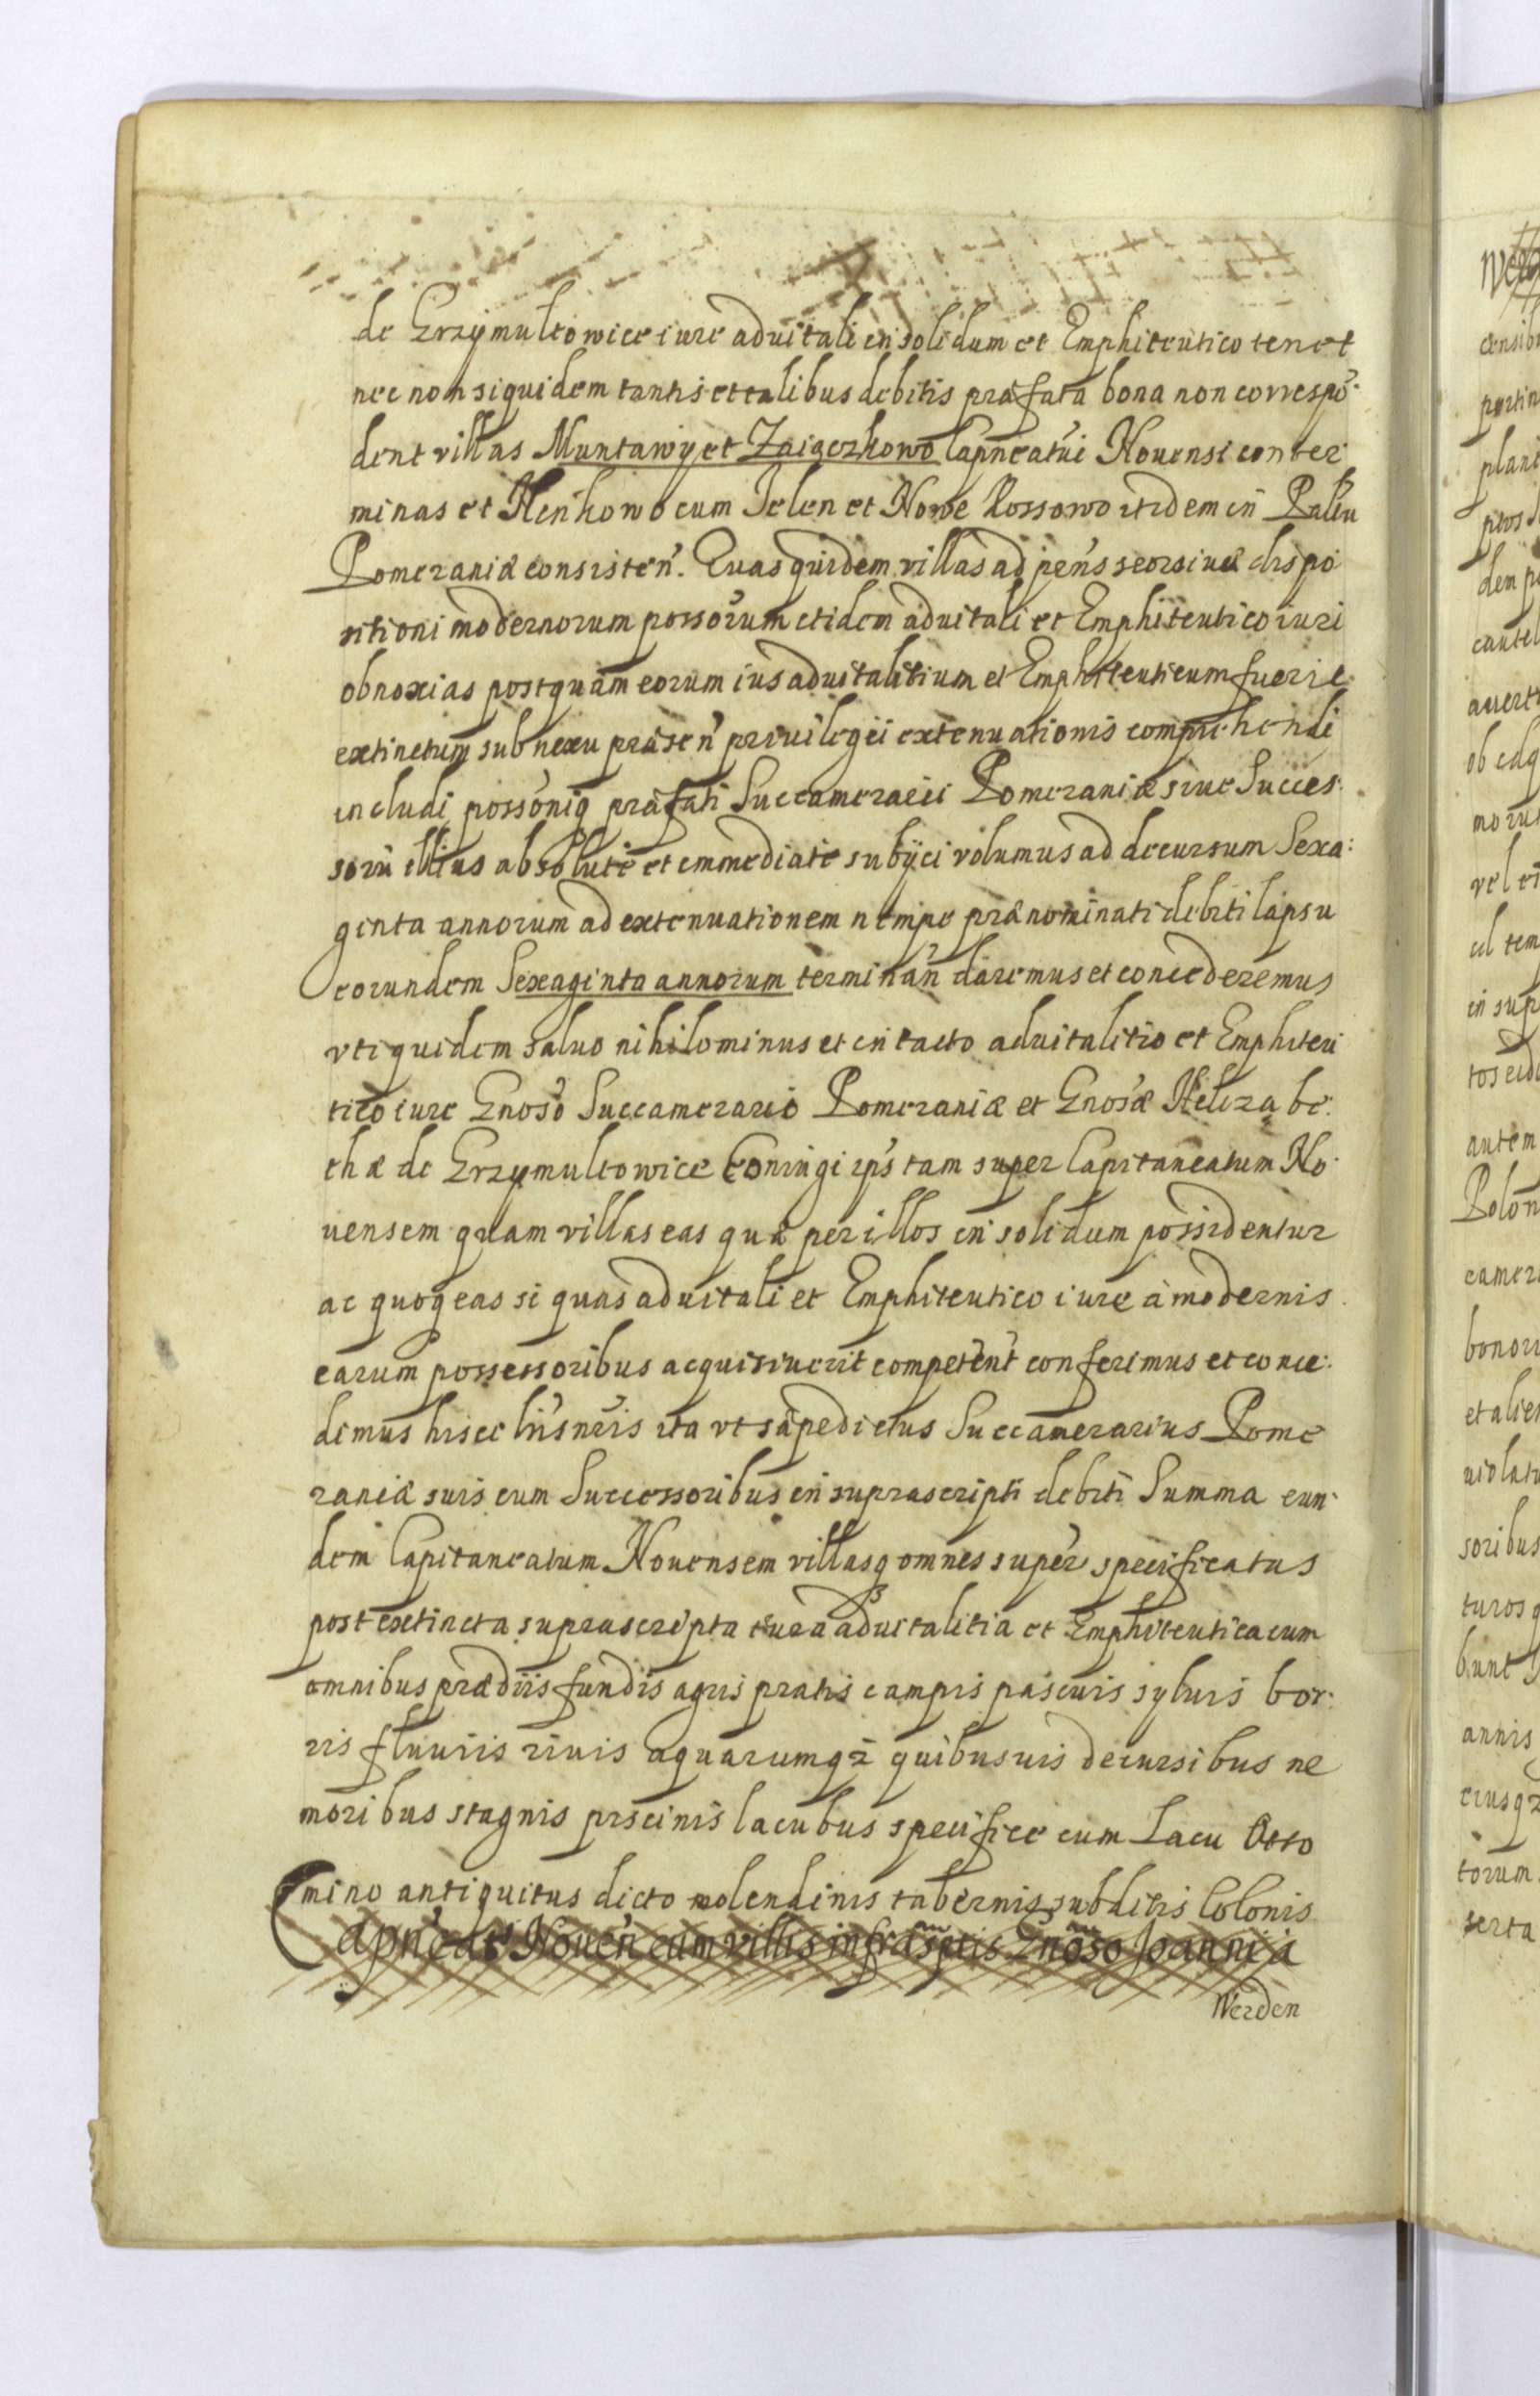 de Grzÿmultowice iure aduitali in solidum et Emphiteutico tenet
nec non siquidem tantis et talibus debitis præfata bona non correspō-
dent villas Muntawÿ et Zaiączkowo Capneatui Nouensi conter-
minas et Henkowo cum Jelen et Nowe Kossowo itidem in Palŭ
Pomeraniæ consisteñ. Quas quidem villas ad pens seorsiuæ dispo
sitioni modernorum possorum etidem aduitali et Emphiteutico iuri
obnoxias postquam eorum ius aduitalitium et Emphiteuticum fuerit
extinctum sub nexu præseñ priuilegii extenuationis comprehendi
includi possoniq præfati Succamerarii Pomeraniæ siue Succes-
sorū illius absolutè et immediatè subÿci volumus ad decursum Sexa:
ginta annorum ad extenuationem nempe prænominati debiti lapsu
eorundem Sexaginta annorum terminañ daremus et concederemus
vti quidem saluo nihilominus et intacto aduitalitio et Emphiteu
tico iure Gnoso Succamerario Pomeraniæ et Gnosæ Helizabe:
thæ de Grzymultowice Coniugi ips tam super Capitaneatum No-
uensem quam villas eas quæ per illos in solidum possidentur
ac quoq eas si quas aduitali et Emphiteutico iure à modernis
earum possessoribus acquisiuerit competent conferimus et conce:
dimus hisce lris nris ita vt sæpedictus Succamerarius Pome
raniæ suis cum Successoribus in suprascripti debiti Summa eun-
dem Capitaneatum Nouensem villasq omnes super specificatas
post extincta suprascripta iura aduitalitia et Emphiteutica cum
omnibus prædiis fundis agris pratis campis pascuis syluis bor-
ris fluuiis riuis aquarumqz quibusuis decursibus ne
moribus stagnis piscinis lacubus specifice cum Lacu Otto
mino antiquitus dicto molendinis tabernis subditis Colonis
Capneat Noueñ cum villis infrasptis Gnoso Joanni à
Werden